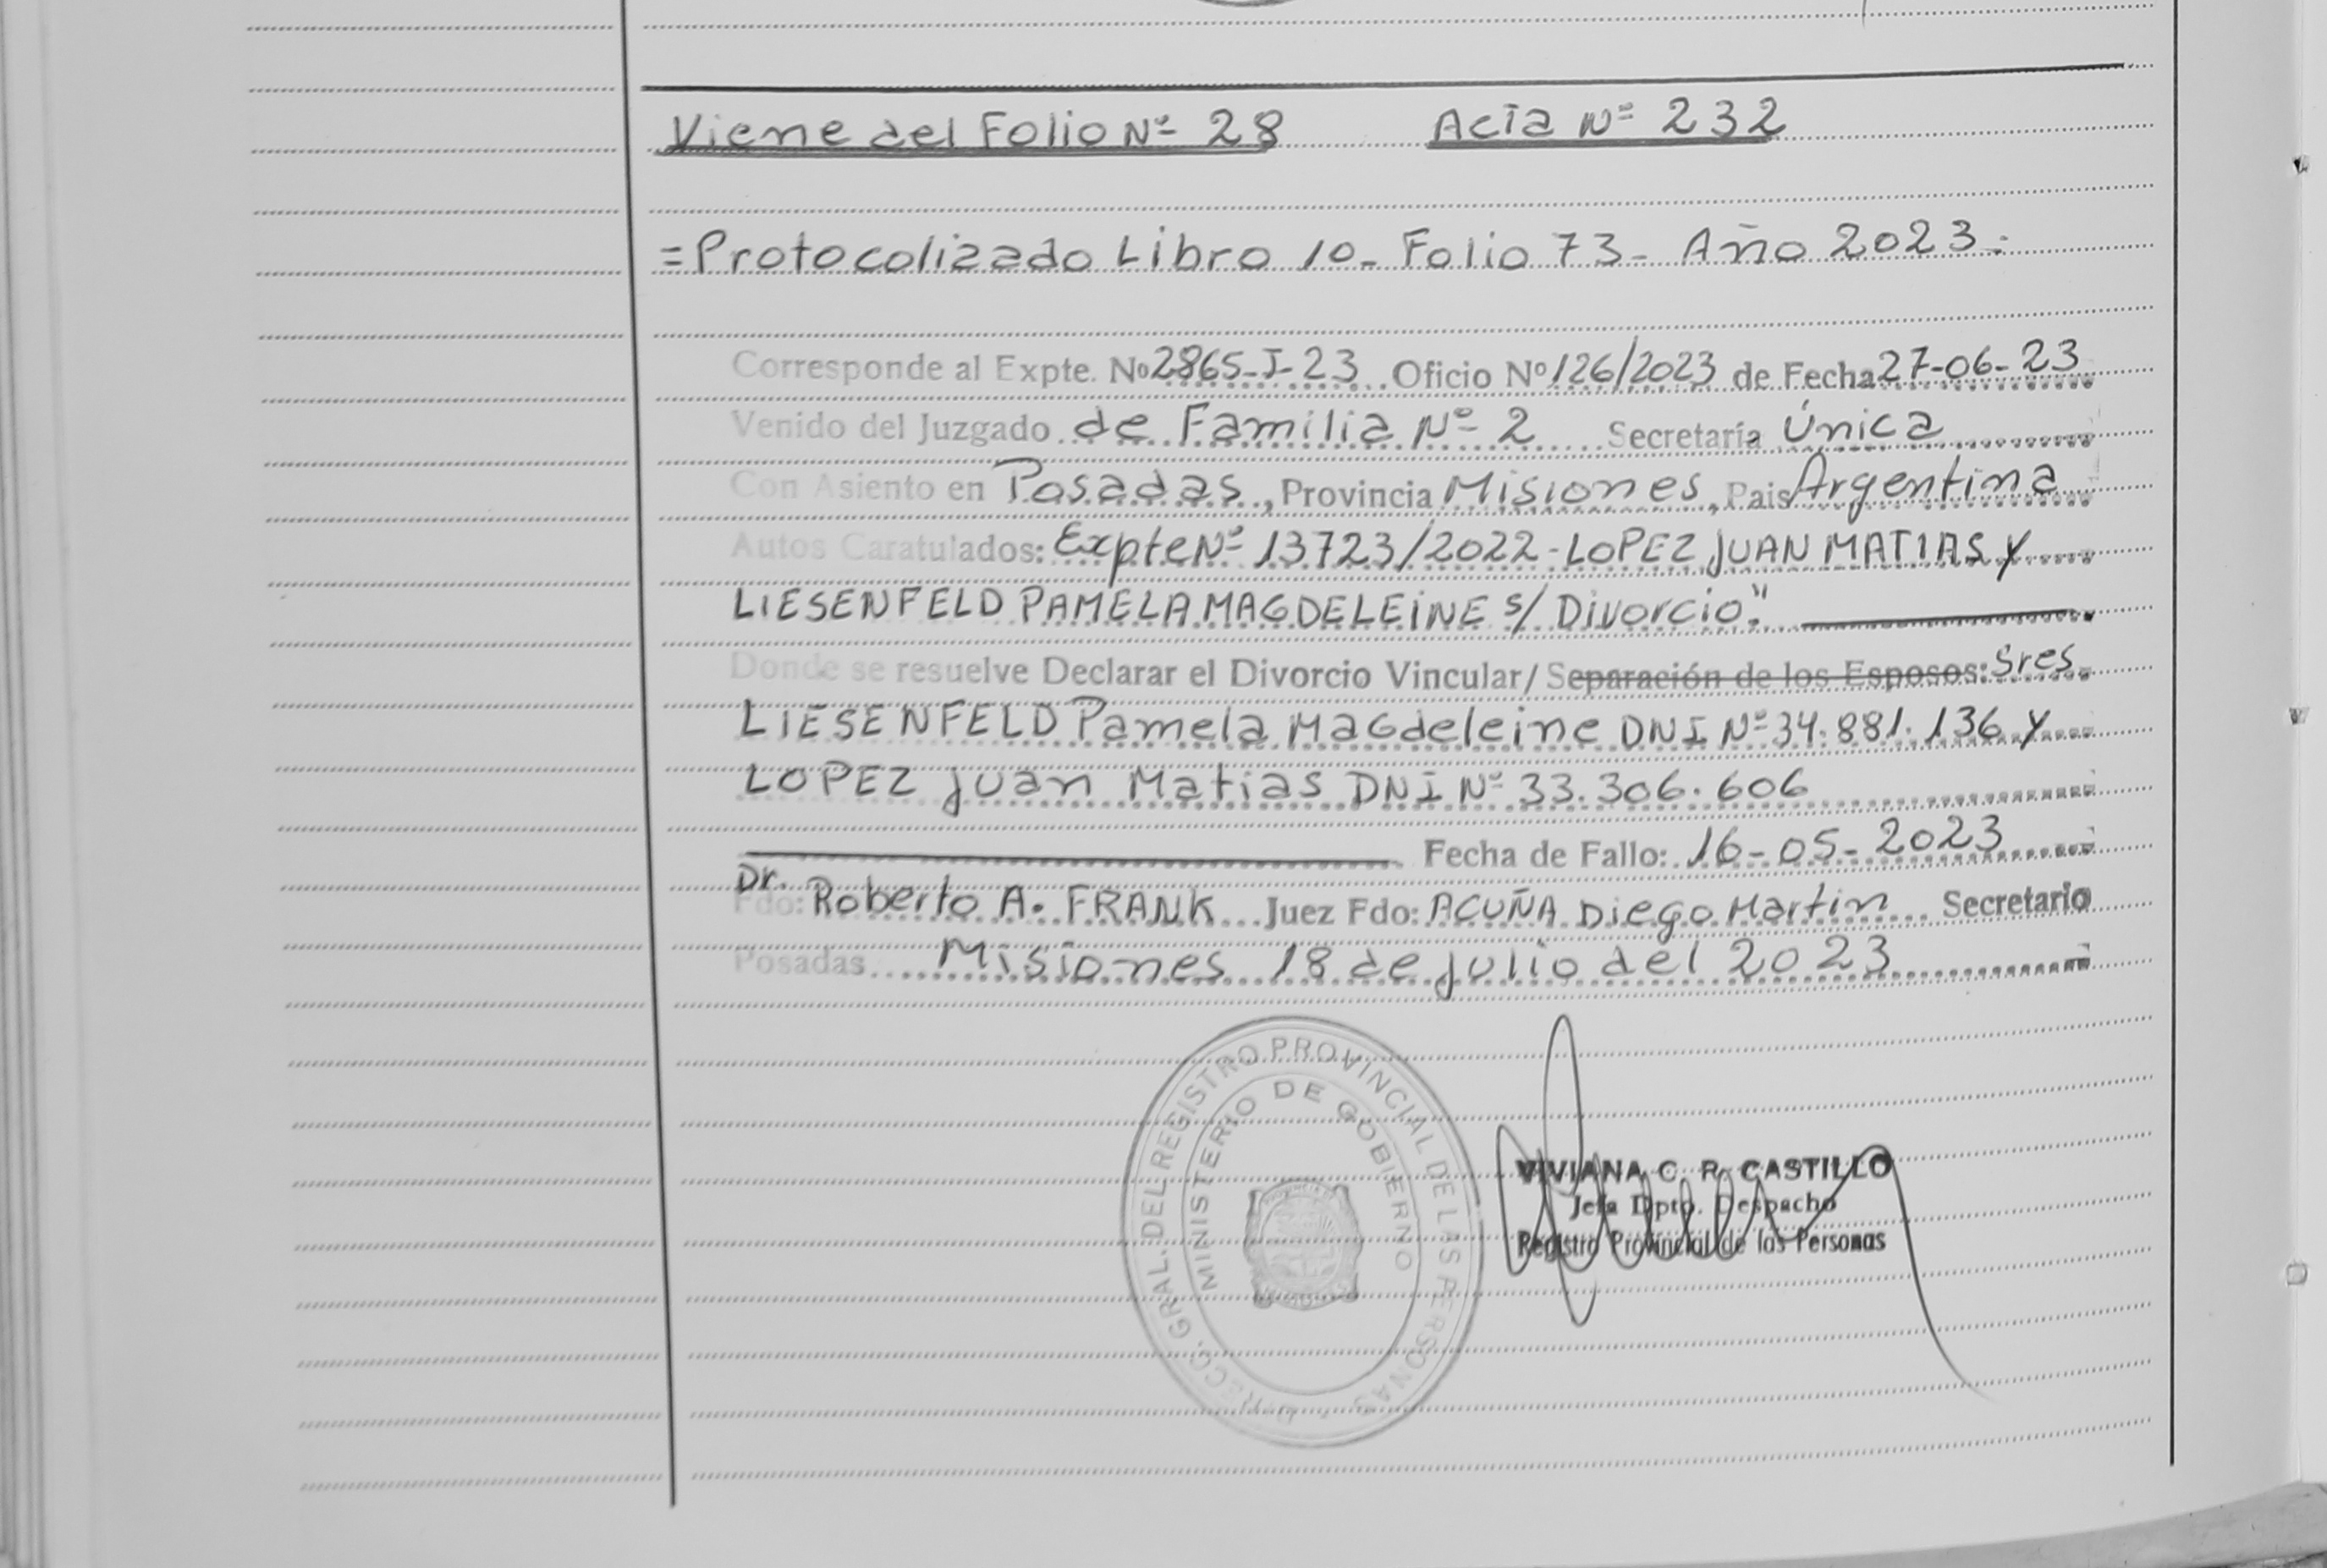 Viene del Folio Nº 28 Acta Nº 232
=Protocolizado Libro 10_ Folio 73_ Año 2023.
Corresponde al Expte. Nº 2865-J-23 Oficio Nº 126/2023 de Fecha 27-06-23
Venido del Juzgado de Familia Nº 2 Secretaría Única
Con Asiento en Posadas, Provincia Misiones, Pais Argentina
Autos Caratulados: Expte Nº 13723/2022-LOPEZ JUAN MATIAS y
LIESENFELD PAMELA MAGDELEINE s/ Divorcio."
Donde se resuelve Declarar el Divorcio Vincular/ Separación de los Esposos: Sres.
LIESENFELD Pamela Magdeleine DNI Nº 34.881.136 y
LOPEZ Juan Matias DNI Nº 33.306.606
Fecha de Fallo: 16-05-2023
Fdo: Dr. Roberto A. FRANK Juez Fdo: ACUÑA Diego Martin Secretario
Posadas Misiones 18 de julio del 2023
DIRECC. GRAL. DEL REGISTRO PROVINCIAL DE LAS PERSONAS
MINISTERIO DE GOBIERNO
VIVIANA C. R. CASTILLO
Jefa Dpto. Despacho
Registro Provincial de las Personas